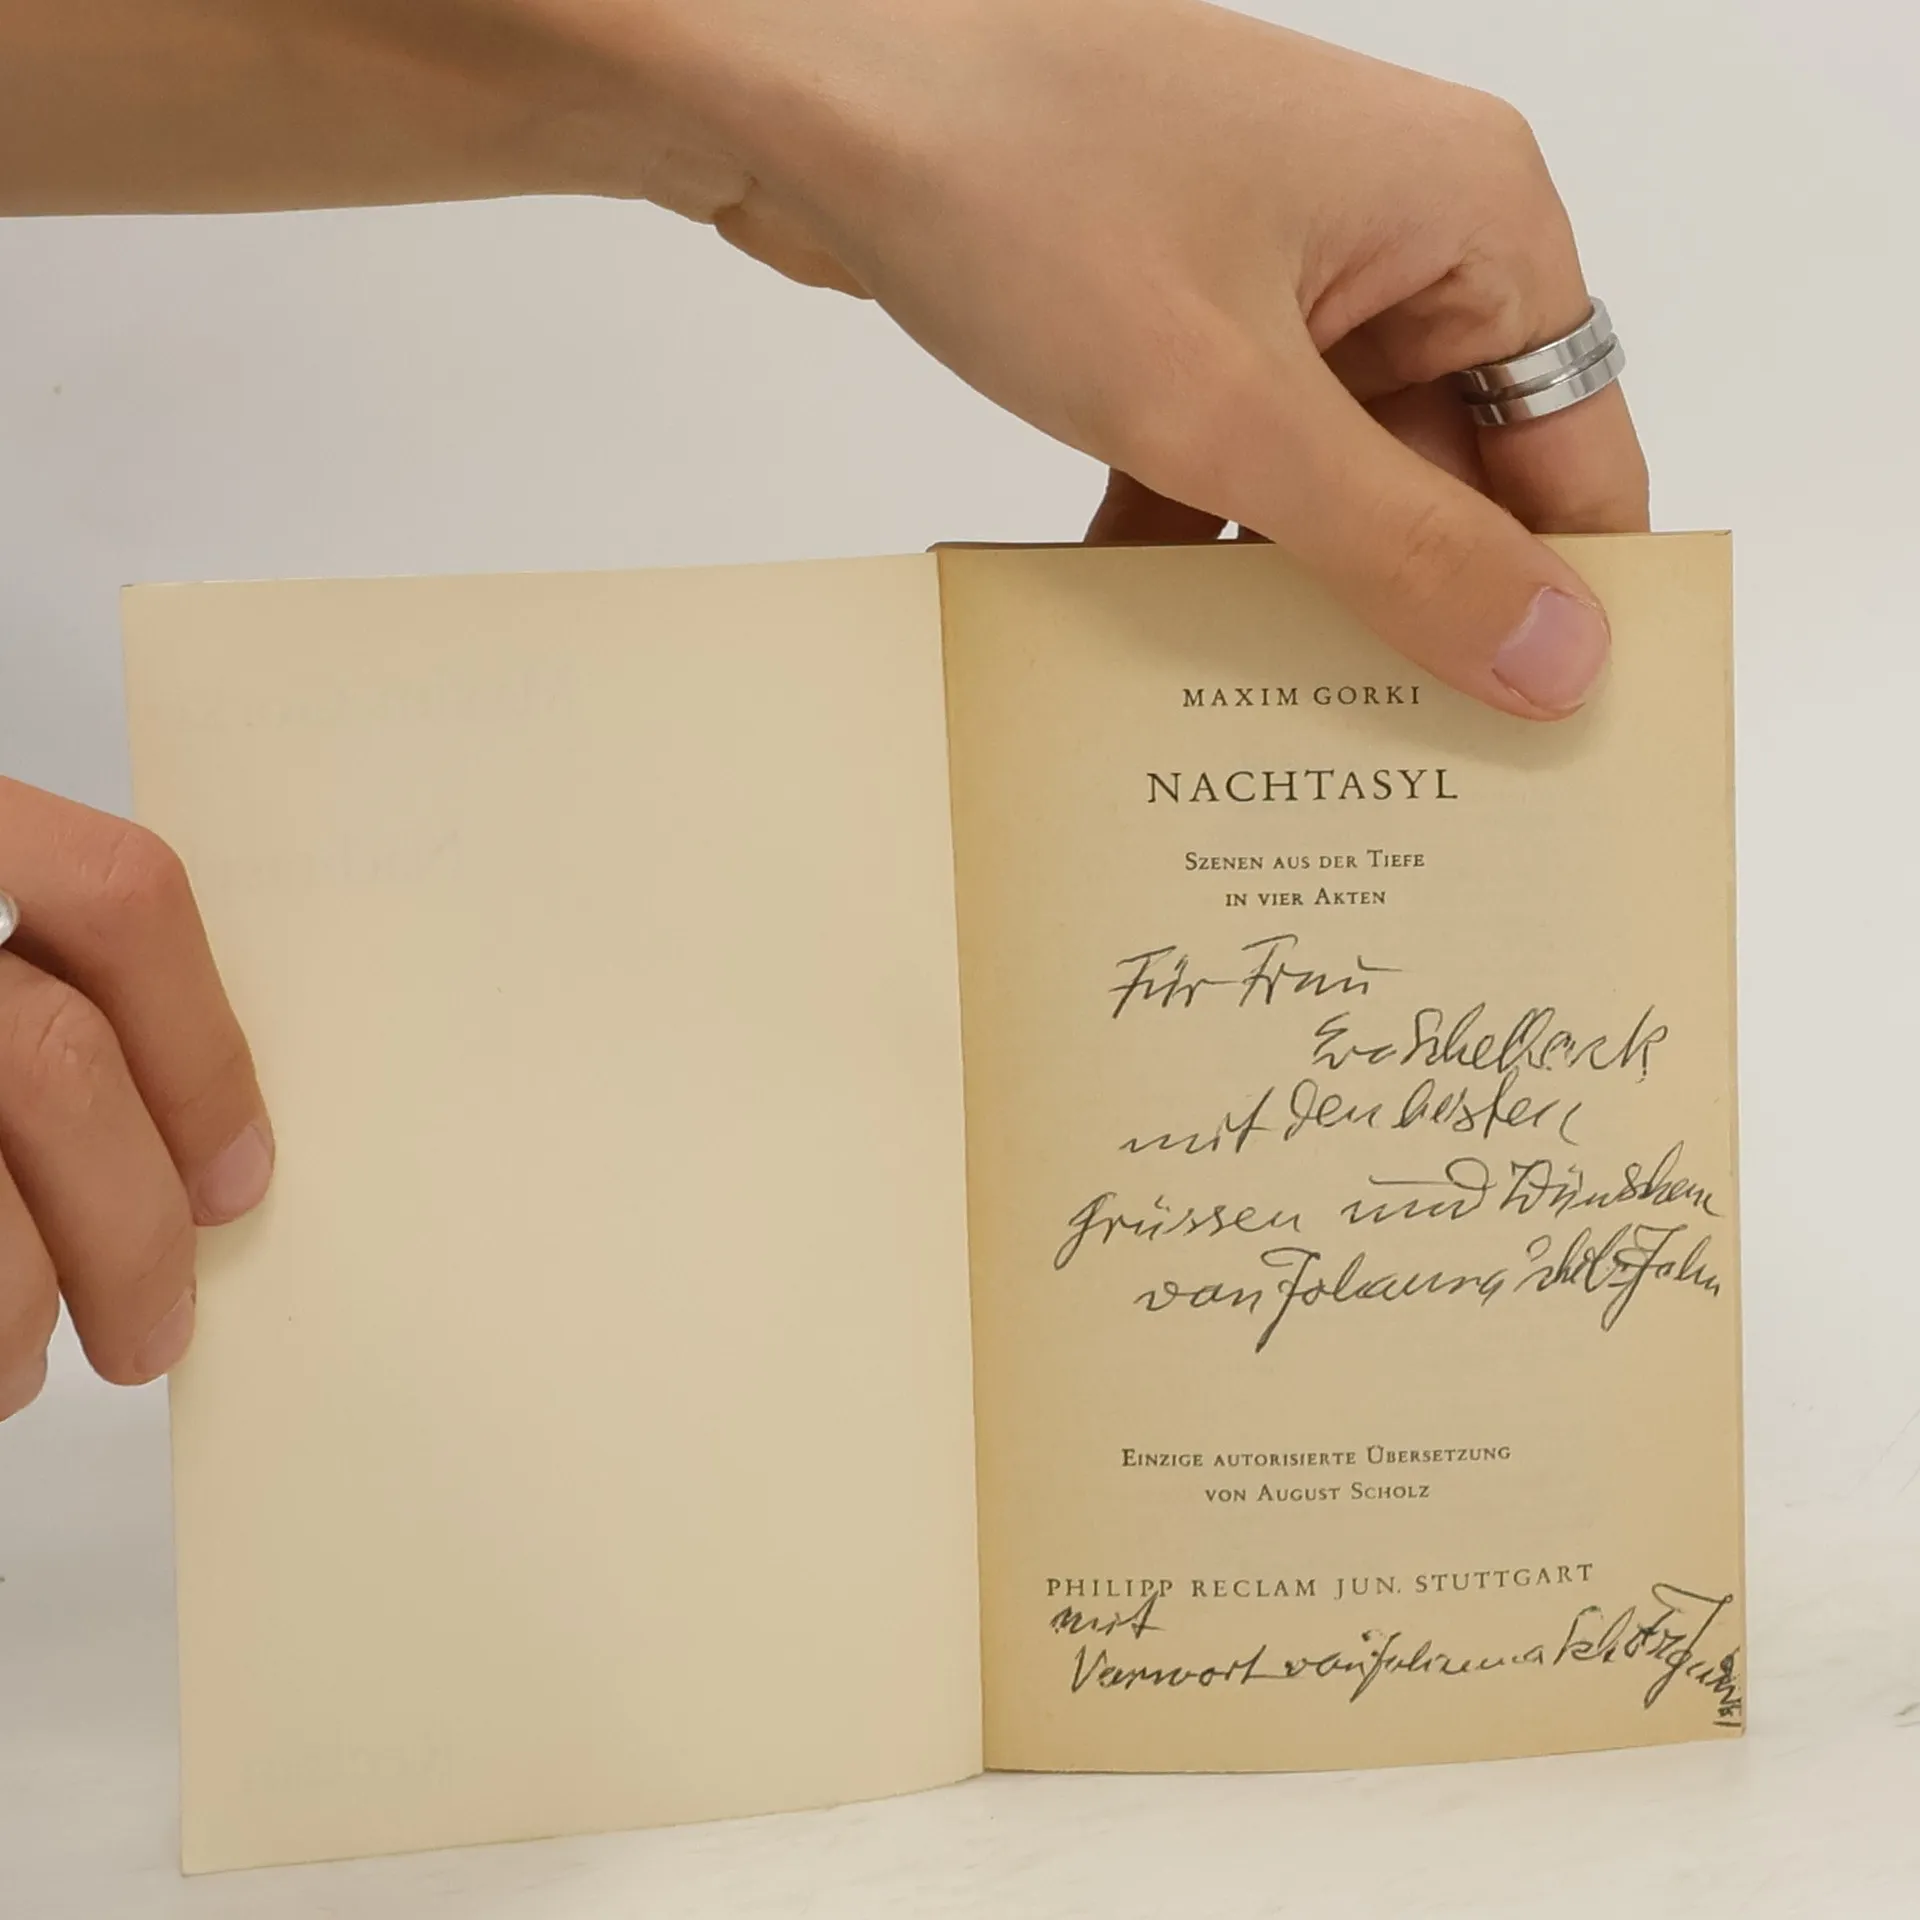 MAXIM GORKI
NACHTASYL
SZENEN AUS DER TIEFE
IN VIER AKTEN
Für Frau
Eva Schellhack
mit den besten
Grüssen und Wünschen
von Johanna
EINZIGE AUTORISIERTE ÜBERSETZUNG
VON AUGUST SCHOLZ
PHILIPP RECLAM JUN. STUTTGART
mit
Vorwort von Johanna